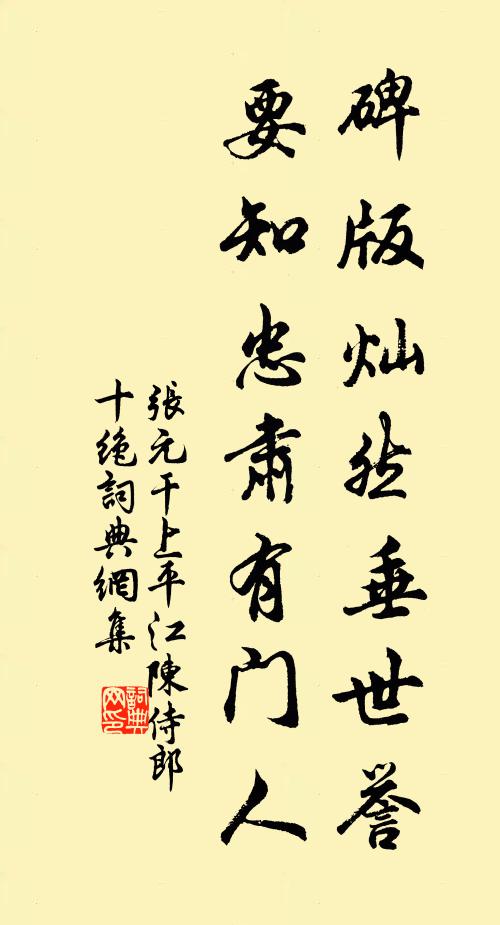 碑版灿然垂世誉
要知忠肃有门人
張元干上平江陳侍郎
十绝詞典網集
詞典
网印